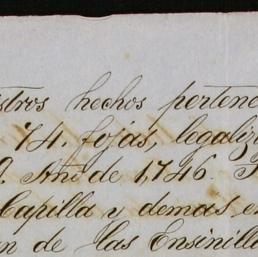 stros hechos pertene
74. fojas, legaliz
Año de 1,746.
Capilla y demas e
n de las Ensinill